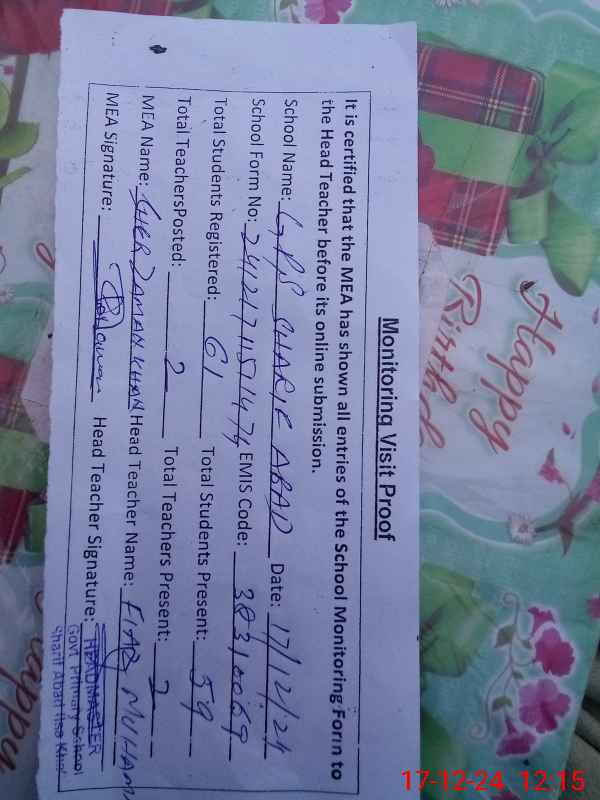 Monitoring Visit Proof
It is certified that the MEA has shown all entries of the School Monitoring Form to
the Head Teacher before its online submission.
School Name: GPS SHARIF ABAD Date: 17/12/24
School Form No: EMIS Code:
Total Students Registered: 61 Total Students Present: 59
Total TeachersPosted: 2 Total Teachers Present: 2
MEA Name: SHER ZAMAN KHAN Head Teacher Name:
MEA Signature: Head Teacher Signature:
HEADMASTER
Govt. Primary School
Sharif Abad
Happy
Birthd
Happy
17-12-24 12:15